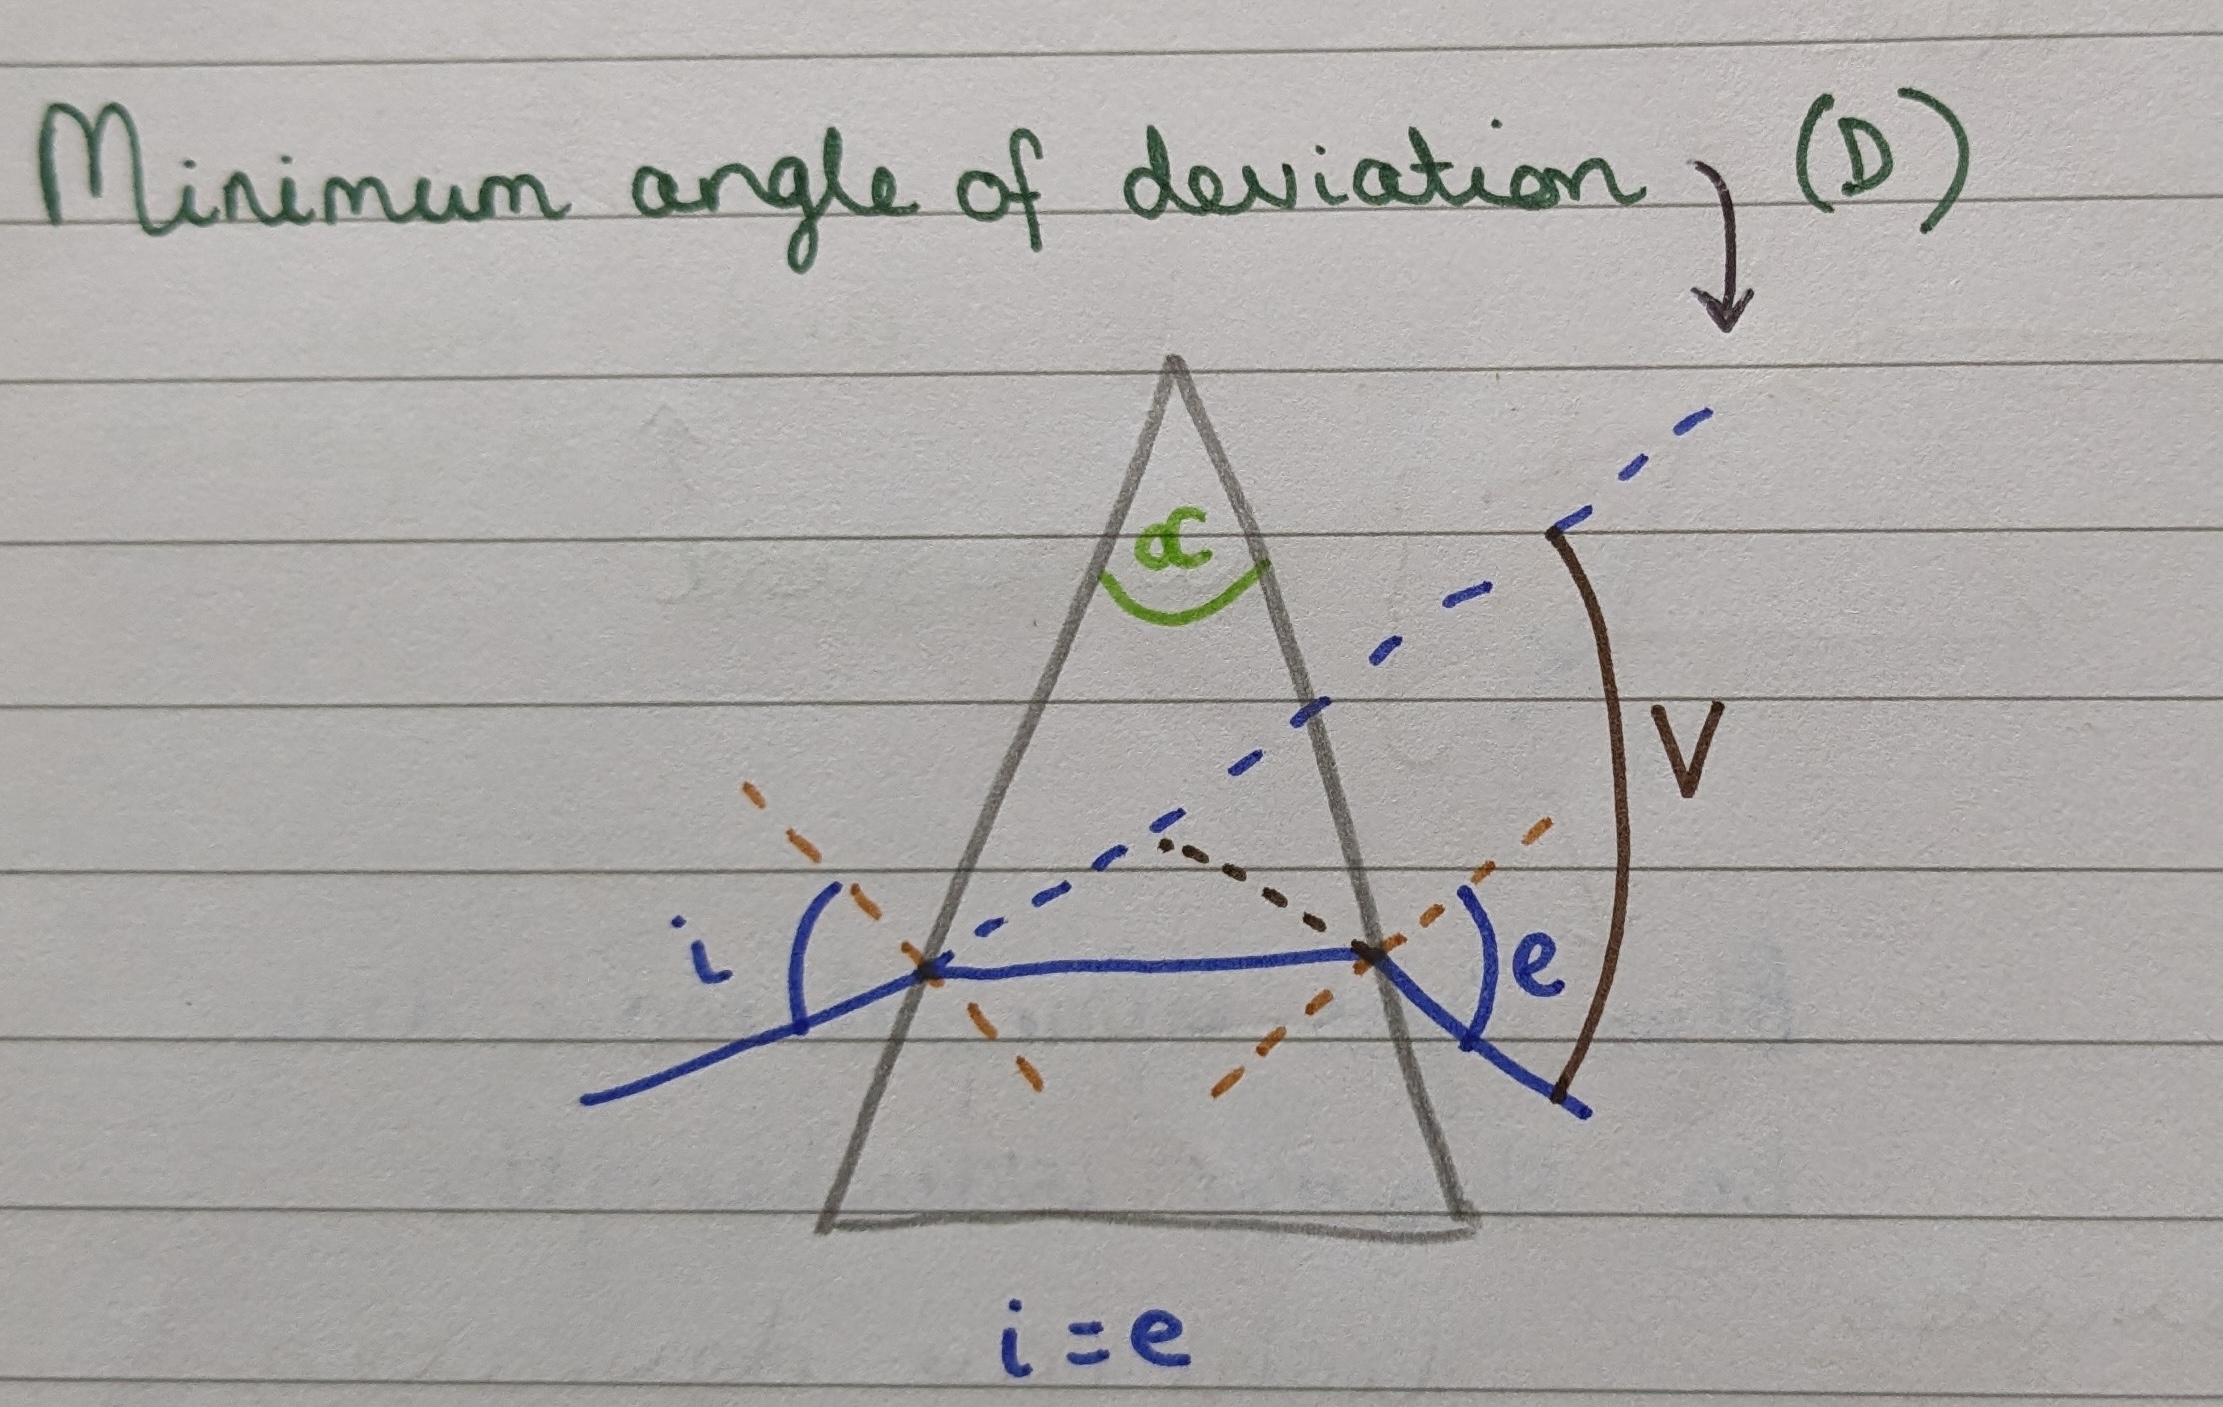 Minimum angle of deviation (D)
α
V
i
e
i = e